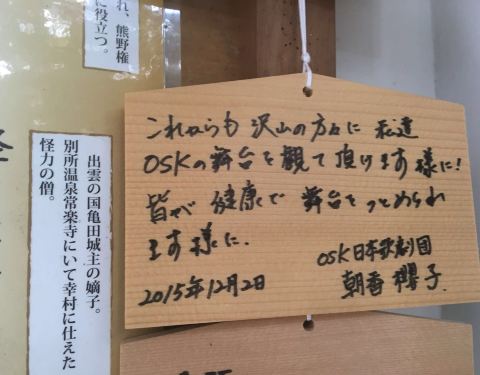 れ、熊野権
に役立つ。
出雲の国亀田城主の嫡子。
別所温泉常楽寺にいて幸村に仕えた
怪力の僧。
これからも 沢山の方々に 私達
OSKの舞台を観て頂けます様に!
皆が 健康で 舞台をつとめられ
ます様に.
OSK日本歌劇団
2015年12月2日
朝香櫻子